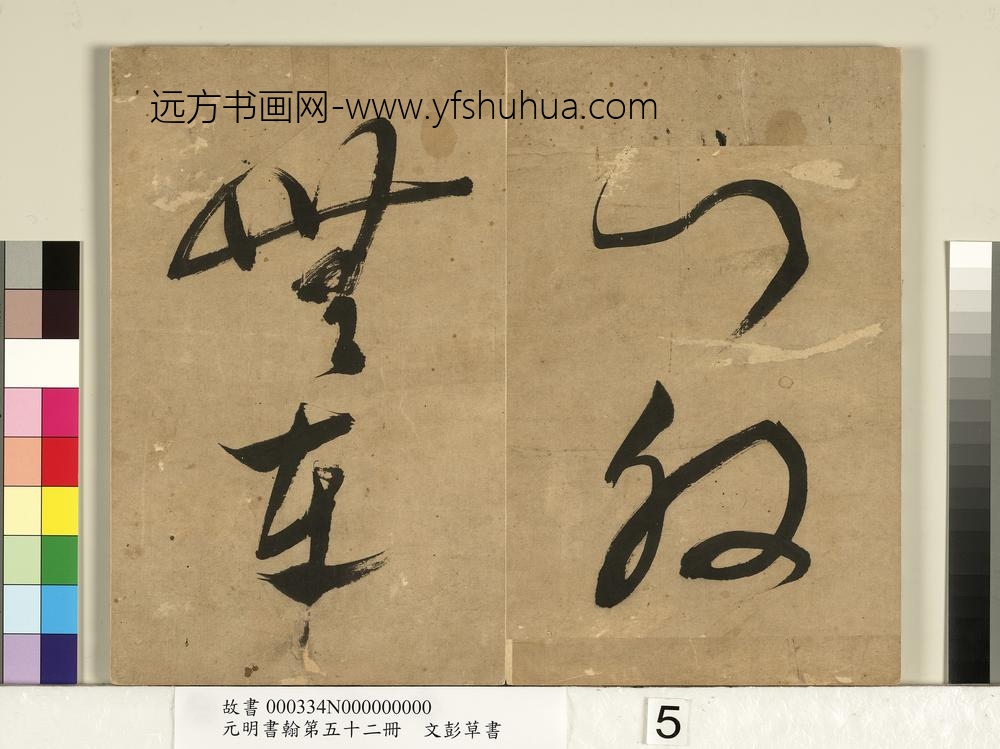 远方书画网-www.yfshuhua.com
門
無車
故書 000334N000000000
元明書翰第五十二冊 文彭草書
5